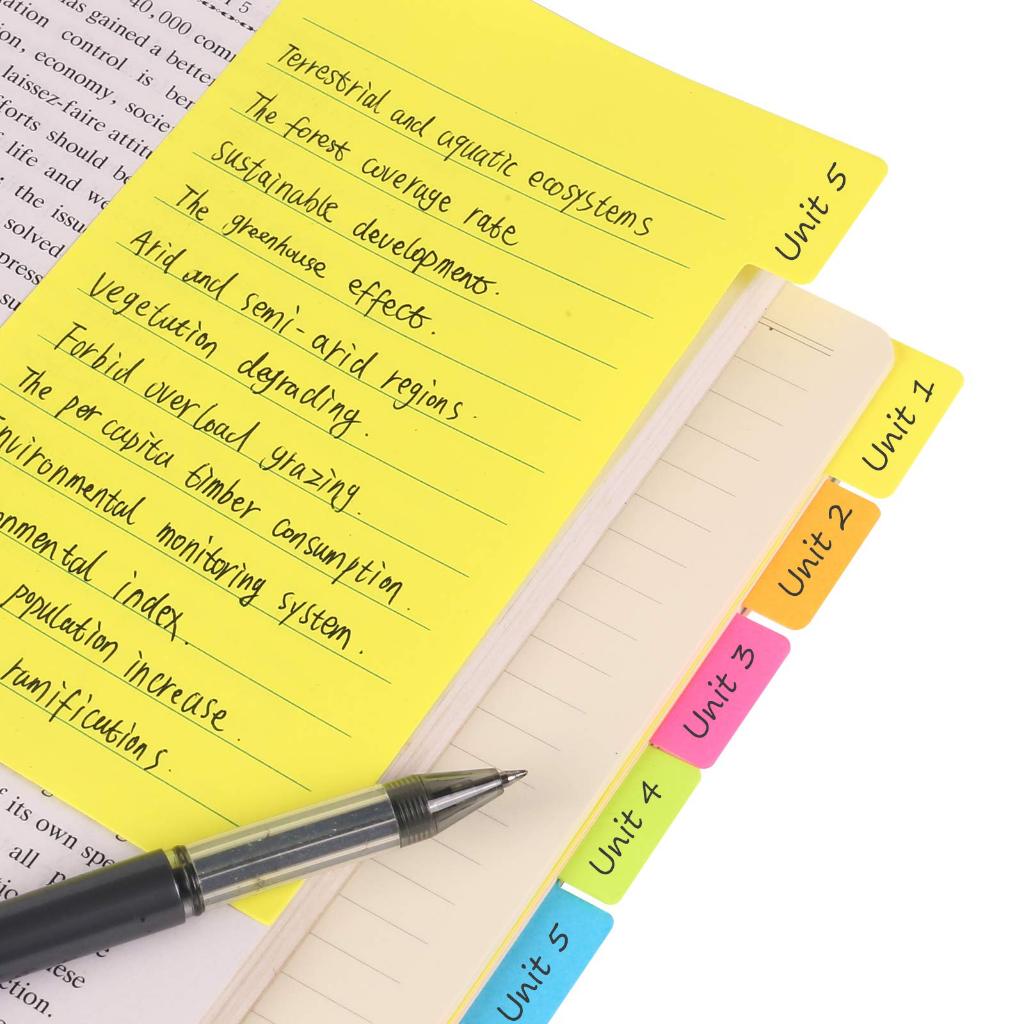 40,000
has gained a better
control is
economy,
laissez-faire
should be
life and
the issu
solved
Terrestrial and aquatic ecosystems
The forest coverage rate
Sustainable development.
The greenhouse effect.
Arid and semi-arid regions.
Vegetution degrading.
Forbid overload grazing.
The per capita timber consumption.
nvironmental monitoring system.
onmental index.
population increase.
ramifications.
Unit 5
Unit 1
Unit 2
Unit 3
Unit 4
Unit 5
its own spe
all
ction.